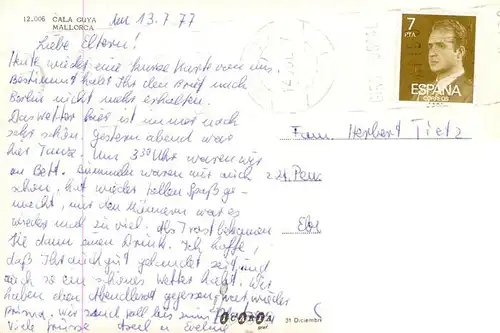 12.006 CALA GUYA
MALLORCA
am 13.7.77
Liebe Eltern!
Heute wieder eine kurze Karte von uns.
Bestimmt habt Ihr den Brief nach
Berlin nicht mehr erhalten.
Das Wetter hier ist immer noch
sehr schön. Gestern abend war
hier Tanz. Um 3 30 Uhr waren wir
im Bett. Bummeln waren wir auch
schon, hat wieder tollen Spaß ge-
macht, nur den Männern war es
wieder mal zu viel. Als Trost bekamen
Sie dann einen Drink. Ich hoffe,
daß Ihr auch gut gelandet seid und
auch so ein schönes Wetter habt. Wir
haben eben Abendbrot gegessen, war wieder
prima, wir sind voll bis zum
Viele Grüsse Axel u Eveline
7
PTA
ESPAÑA
CORREOS
Fam. Herbert Tietz
24 Pen
Elbe
ICARIA
graf
31 Diciembre